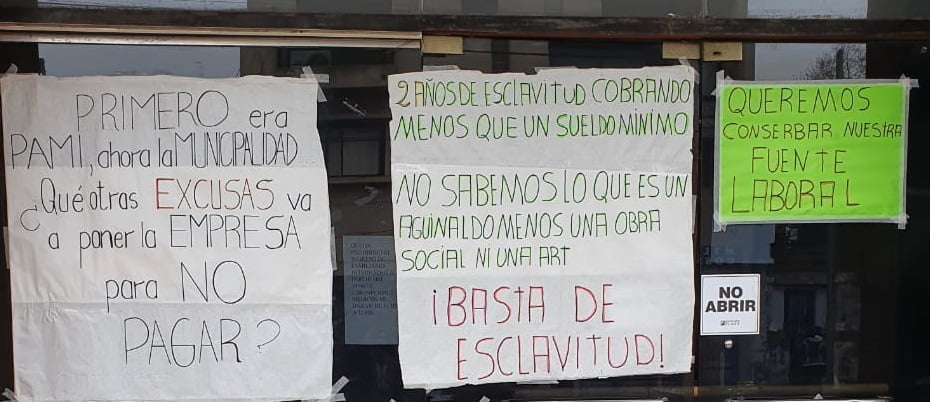 PRIMERO era
PAMI, ahora la MUNICIPALIDAD
¿Qué otras EXCUSAS va
a poner la EMPRESA
para NO
PAGAR?
2 AÑOS DE ESCLAVITUD COBRANDO
MENOS QUE UN SUELDO MINIMO
NO SABEMOS LO QUE ES UN
AGUINALDO MENOS UNA OBRA
SOCIAL NI UNA ART
¡BASTA DE
ESCLAVITUD!
QUEREMOS
CONSERBAR NUESTRA
FUENTE
LABORAL
NO
ABRIR